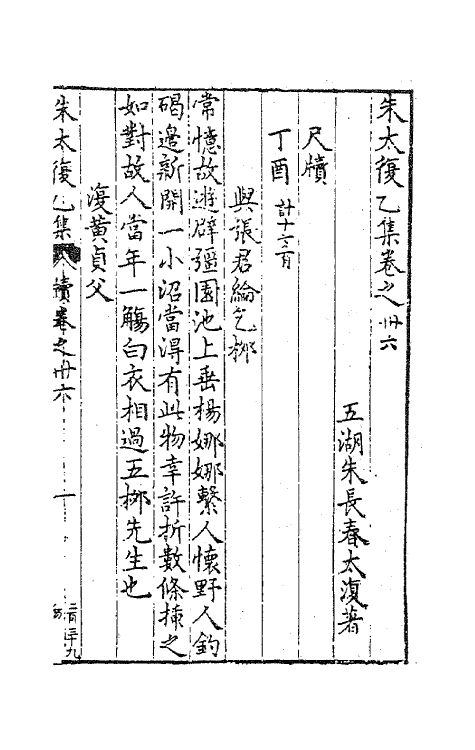 朱太復乙集卷之卅六
五湖朱長春太復著
尺牘
丁酉 計十六首
與張君綸乞栁
常憶故遊辟彊園池上垂楊娜娜繫人懷野人釣
碣邉新開一小沼當得有此物幸許折數條揷之
如對故人當年一觴白衣相過五栁先生也
復黄貞父
朱太復乙集 尺牘卷之卅六 一